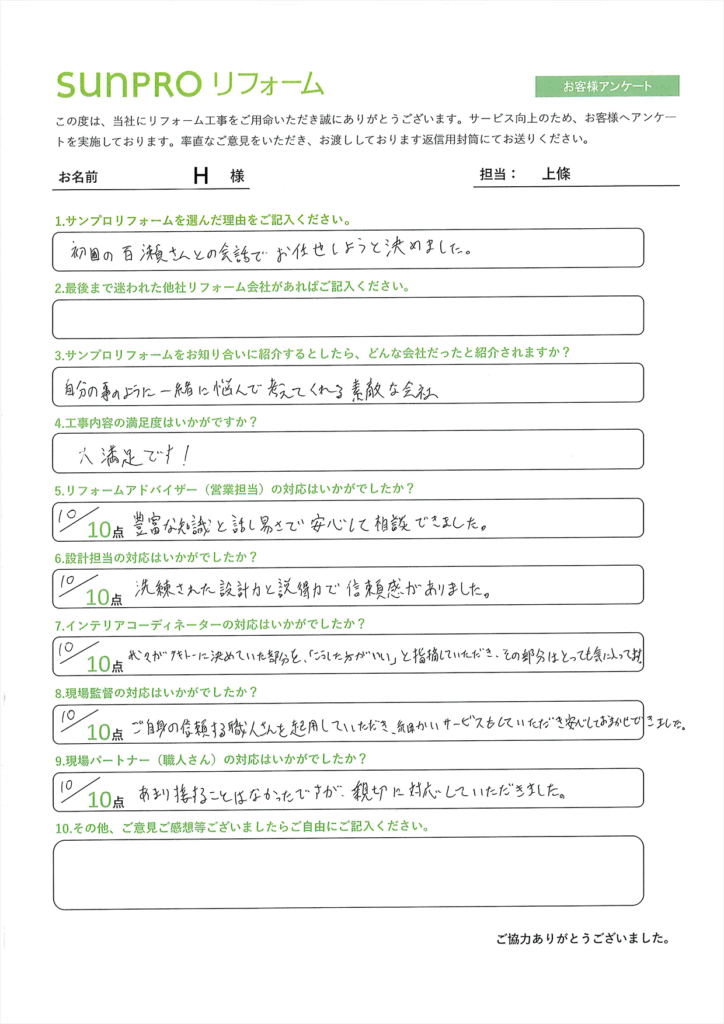 sunpro リフォーム
お客様アンケート
この度は、当社にリフォーム工事をご用命いただき誠にありがとうございます。サービス向上のため、お客様へアンケー
トを実施しております。率直なご意見をいただき、お渡ししております返信用封筒にてお送りください。
お名前 H 様 担当： 上條
1.サンプロリフォームを選んだ理由をご記入ください。
初回の百瀬さんとの会話でお任せしようと決めました。
2.最後まで迷われた他社リフォーム会社があればご記入ください。
3.サンプロリフォームをお知り合いに紹介するとしたら、どんな会社だったと紹介されますか？
自分の事のように一緒に悩んで考えてくれる素敵な会社
4.工事内容の満足度はいかがですか？
大満足です！
5.リフォームアドバイザー（営業担当）の対応はいかがでしたか？
10/10点 豊富な知識と話し易さで安心して相談できました。
6.設計担当の対応はいかがでしたか？
10/10点 洗練された設計力と説得力で信頼感がありました。
7.インテリアコーディネーターの対応はいかがでしたか？
10/10点 我々がテキトーに決めていた部分を、「こうした方がいい」と指摘していただき、その部分はとっても気に入って
8.現場監督の対応はいかがでしたか？
10/10点 ご自身の信頼する職人さんを起用していただき、細かいサービスもしていただき安心しておまかせできました。
9.現場パートナー（職人さん）の対応はいかがでしたか？
10/10点 あまり接することはなかったですが、親切に対応していただきました。
10.その他、ご意見ご感想等ございましたらご自由にご記入ください。
ご協力ありがとうございました。